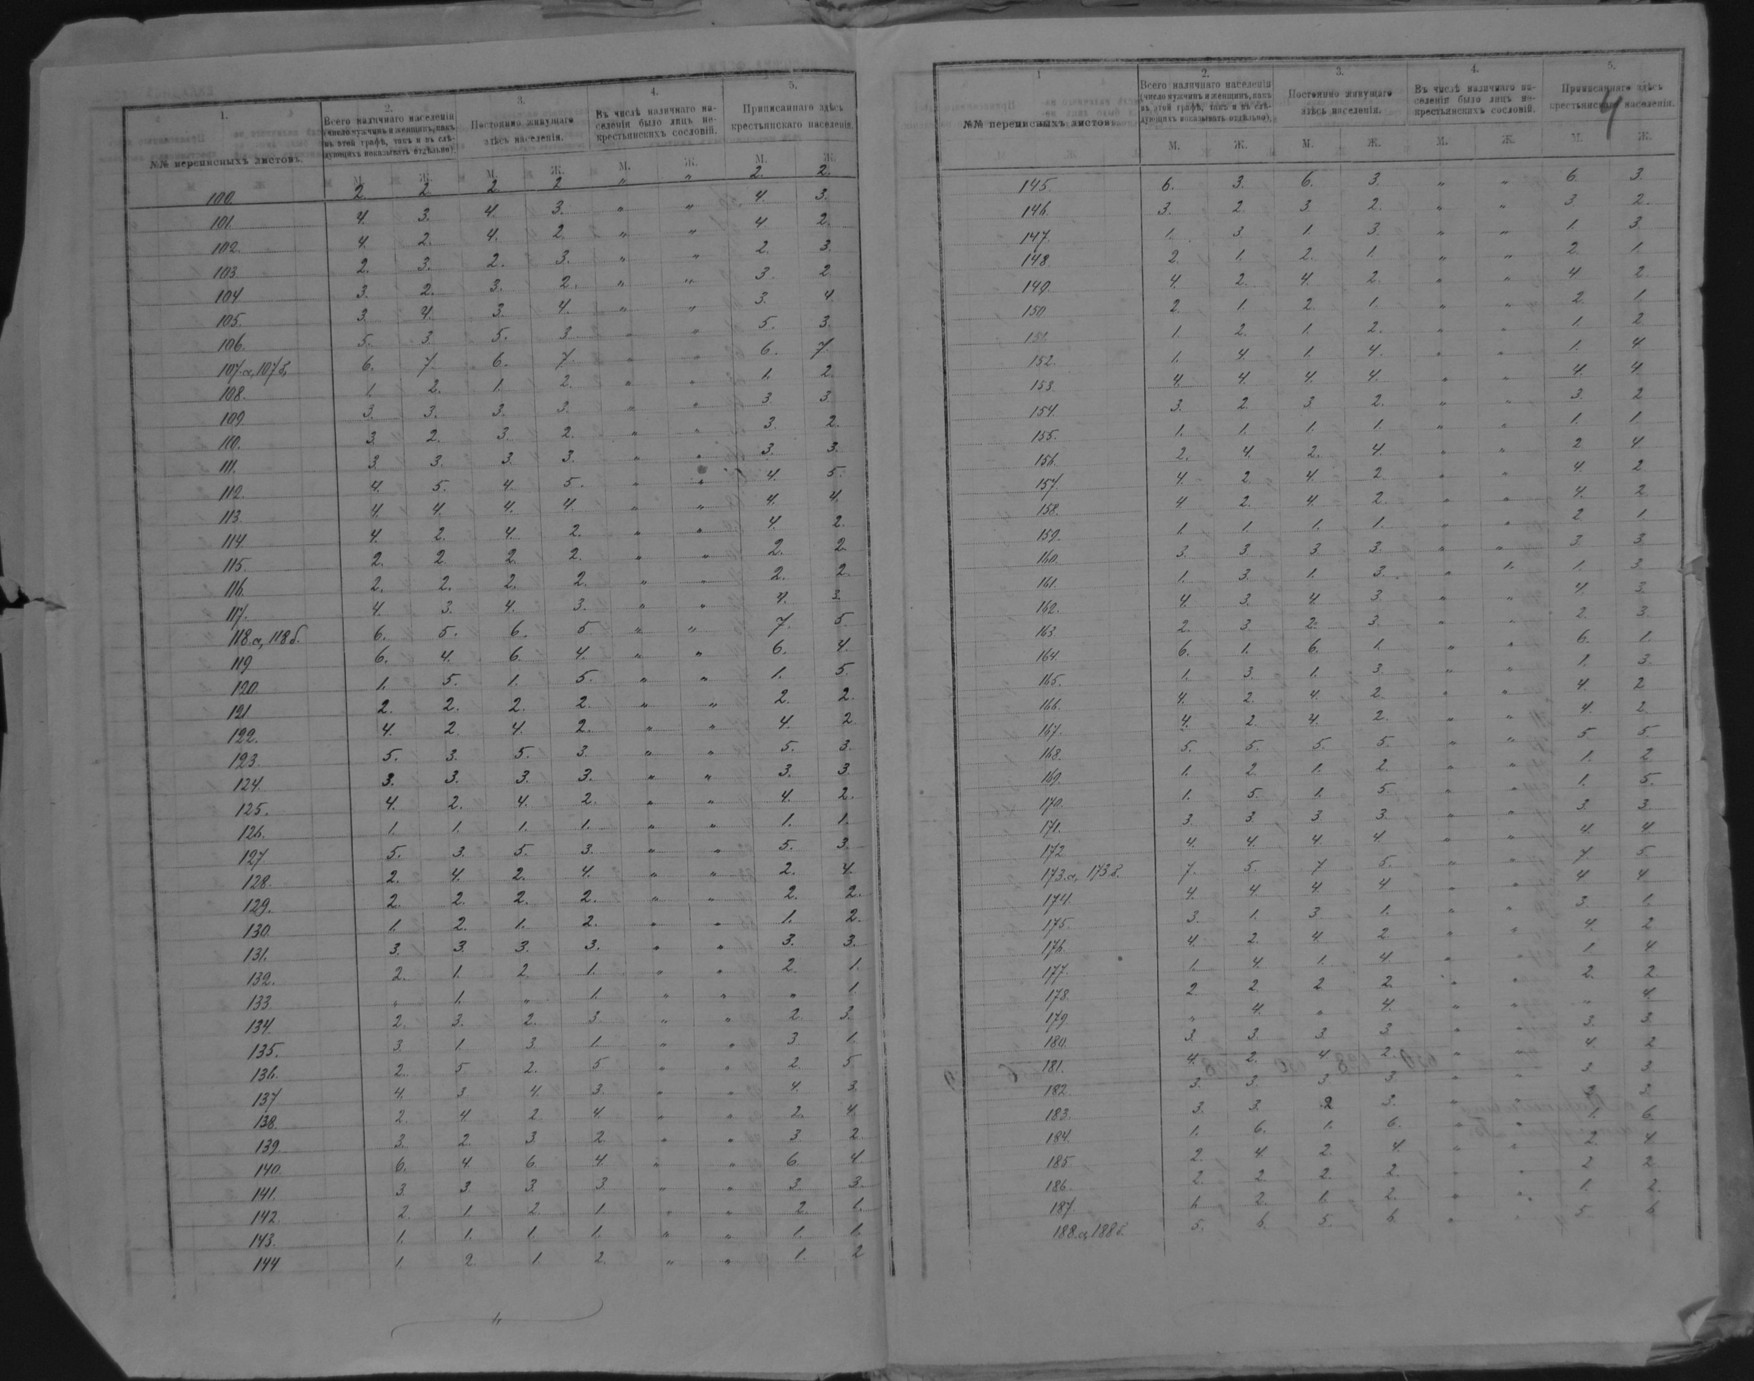 1. 2. 3. 4. 5.
№№ переписныхъ листовъ. Всего наличнаго населенія (число мужчинъ и женщинъ, какъ въ этой графѣ, такъ и въ слѣдующихъ показывать отдѣльно). Постоянно живущаго здѣсь населенія. Въ числѣ наличнаго населенія было лицъ некрестьянскихъ сословій. Приписаннаго здѣсь крестьянскаго населенія.
М. Ж. М. Ж. М. Ж. М. Ж.
100. 2. 2 2 2 " " 2. 2.
101. 4. 3. 4. 3. " " 4. 3.
102. 4. 2. 4. 2. " " 4 2.
103. 2. 3. 2. 3. " " 2 3.
104 3. 2. 3. 2. " " 3. 2
105. 3. 4. 3. 4. " " 3. 4
106. 5. 3. 5. 3 " " 5. 3.
107а, 107б. 6. 7. 6. 7. " " 6. 7.
108. 1. 2. 1. 2. " " 1. 2
109. 3. 3. 3. 3. " " 3 3.
110. 3. 2. 3. 2. " " 3. 2.
111. 3. 3. 3. 3. " " 3. 3.
112. 4. 5. 4. 5. " " 4. 5.
113. 4. 4. 4. 4. " " 4. 4
114. 4. 2. 4. 2. " " 4. 2.
115 2. 2. 2. 2. " " 2. 2
116. 2. 2. 2. 2. " " 2. 2.
117. 4. 3. 4. 3. " " 4. 3.
118.а, 118б. 6. 5. 6. 5 " " 7. 5.
119 6. 4. 6. 4. " " 6. 4
120. 1. 5. 1. 5. " " 1. 5
121 2. 2. 2. 2. " " 2. 2.
122. 4. 2 4. 2. " " 4 2.
123. 5. 3. 5. 3. " " 5. 3.
124. 3. 3. 3. 3. " " 3. 3.
125. 4. 2. 4. 2. " " 4. 2.
126. 1. 1. 1. 1. " " 1. 1.
127. 5. 3. 5. 3. " " 5. 3.
128. 2. 4. 2. 4. " " 2. 4.
129. 2. 2. 2. 2. " " 2. 2.
130. 1. 2. 1. 2. " " 1. 2.
131. 3. 3. 3. 3. " " 3. 3.
132. 2. 1. 2. 1. " " 2. 1.
133. " 1. " 1. " " " 1.
134. 2. 3. 2. 3. " " 2. 3.
135. 3. 1. 3. 1. " " 3. 1.
136. 2. 5 2. 5 " " 2. 5
137 4. 3 4. 3. " " 4. 3
138. 2 4 2 4. " " 2. 4
139. 3. 2. 3 2 " " 3 2.
140. 6. 4 6. 4. " " 6. 4
141. 3. 3 3 3 " " 3 3
142. 2. 1. 2 1. " " 2 1.
143. 1. 1. 1 1. " " 1. 1.
144 1. 2 1 2. " " 1. 2
4
1 2. 3. 4. 5.
№№ переписныхъ листовъ. Всего наличнаго населенія (число мужчинъ и женщинъ, какъ въ этой графѣ, такъ и въ слѣдующихъ показывать отдѣльно). Постоянно живущаго здѣсь населенія. Въ числѣ наличнаго населенія было лицъ некрестьянскихъ сословій. Приписаннаго здѣсь крестьянскаго населенія.
М. Ж. М. Ж. М. Ж. М. Ж.
145. 6. 3. 6. 3. " " 6. 3
146. 3. 2 3. 2. " " 3. 2.
147. 1. 3 1. 3. " " 1. 3
148. 2 1. 2. 1. " " 2. 1
149. 4. 2. 4. 2. " " 4 2
150 2. 1. 2 1. " " 2. 1
151. 1. 2. 1. 2. " " 1. 2
152. 1. 4 1. 4. " " 1. 4
153. 4. 4. 4. 4. " " 4. 4
154. 3. 2. 3 2. " " 3. 2
155. 1. 1. 1. 1. " " 1. 1
156. 2. 4. 2. 4. " " 2 4
157. 4. 2 4. 2 " " 4 2
158. 4 2. 4. 2. " " 4. 2
159. 1. 1. 1. 1. " " 2 1.
160. 3. 3 3. 3. " " 3. 3
161. 1. 3. 1. 3. " 1. 1. 3
162. 4. 3. 4 3. " " 4. 3.
163 2. 3 2. 3. " " 2. 3
164. 6. 1. 6. 1. " " 6. 1.
165. 1. 3. 1. 3. " " 1. 3.
166. 4. 2. 4. 2. " " 4. 2
167. 4. 2. 4. 2. " " 4 2
168. 5. 5. 5. 5. " " 5 5
169. 1. 2. 1. 2. " " 1. 2
170. 1. 5. 1. 5. " " 1. 5.
171. 3. 3 3 3. " " 3. 3
172 4. 4. 4. 4 " " 4. 4
173.а, 173б. 7. 5. 7 5. " " 7 5
174. 4. 4 4 4 " " 4 4
175. 3. 1. 3. 1. " " 3. 1.
176. 4. 2. 4. 2. " " 4. 2
177. 1. 4. 1. 4 " " 1. 4
178. 2 2 2 2. " " 2. 2
179 " 4. " 4. " " " 4
180. 3 3 3 3. " " 3. 3
181. 4. 2. 4 2. " " 4 2
182. 3. 3. 3 3 " " 3 3
183. 3. 3. 2 3. " " 3
184. 1. 6. 1. 6. " " 1. 6.
185. 2. 4 2 4. " " 2. 4
186. 2. 2. 2. 2. " " 2 2
187. 2. 1. 2. " " 1. 2.
188.а, 188б. 5. 6. 5. 6. " " 5. 6.